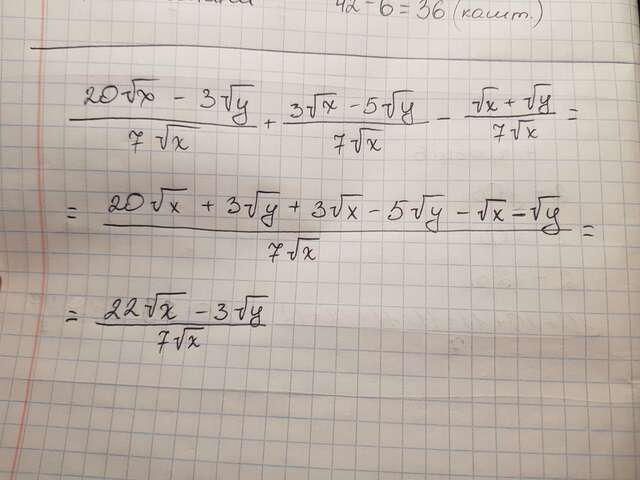 42 - 6 = 36 (кошт.)
(20√x - 3√y)/(7√x) + (3√x - 5√y)/(7√x) - (√x + √y)/(7√x) =
= (20√x + 3√y + 3√x - 5√y - √x - √y)/(7√x) =
= (22√x - 3√y)/(7√x)